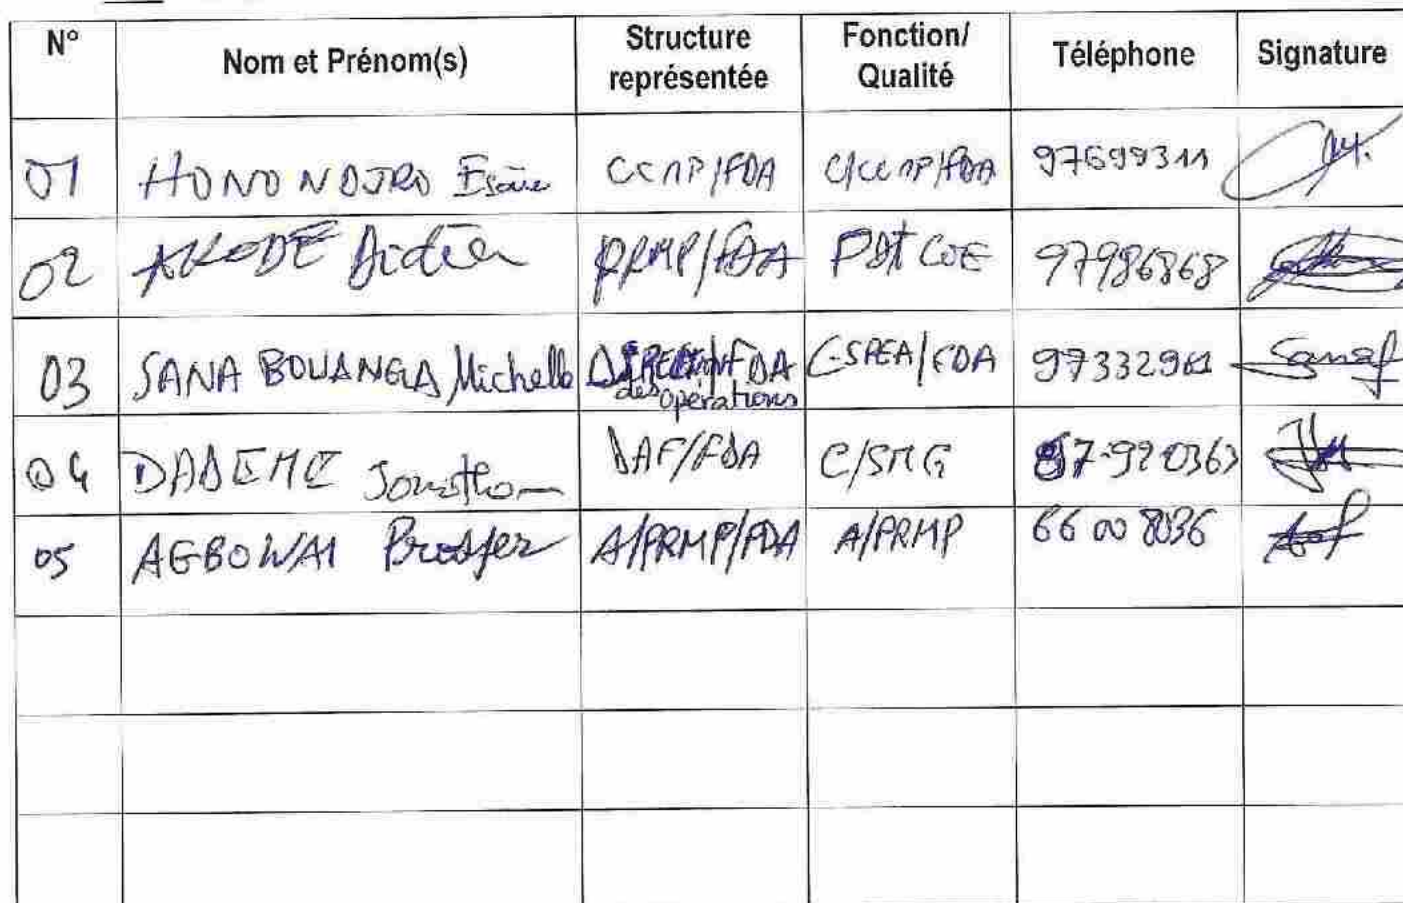 N° Nom et Prénom(s) Structure représentée Fonction/ Qualité Téléphone Signature
01 HONONDJRO Esaïe CCMP/FDA C/CCMP/FDA 97699311
02 AKODE Didier PRMP/FDA PDT COE 97986868
03 SANA BOUANGA Michelle Direction/FDA des opérations C-SPEA/FDA 97332961
04 DADEME Jonathan DAF/FDA C/SMG 67-920363
05 AGBOWAI Prosper A/PRMP/FDA A/PRMP 66 00 8036